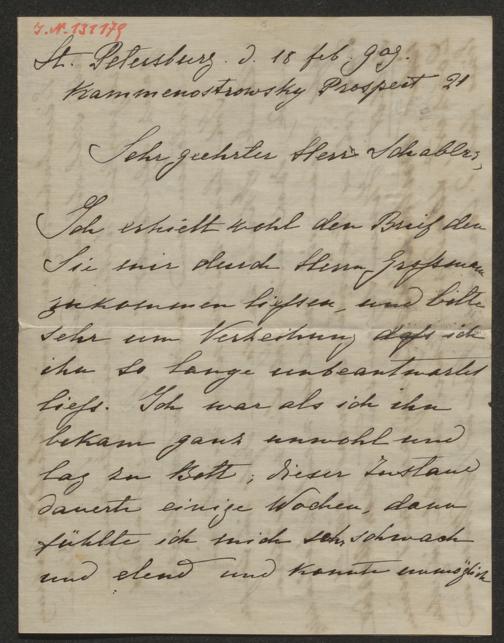 J.N. 131179
St. Petersburg. d. 18 feb. 909.
Kammenostrowsky Prospect 21
Sehr geehrter Herr Schabler,
Ich erhielt wohl den Brief den
Sie mir durch Herrn Großmann
zukommen ließen, und bitte
sehr um Verzeihung daß ich
ihn so lange unbeantwortet
ließ. Ich war als ich ihn
bekam ganz unwohl und
lag zu Bett; dieser Zustand
dauerte einige Wochen, dann
fühlte ich mich sehr schwach
und elend und konnte unmöglich